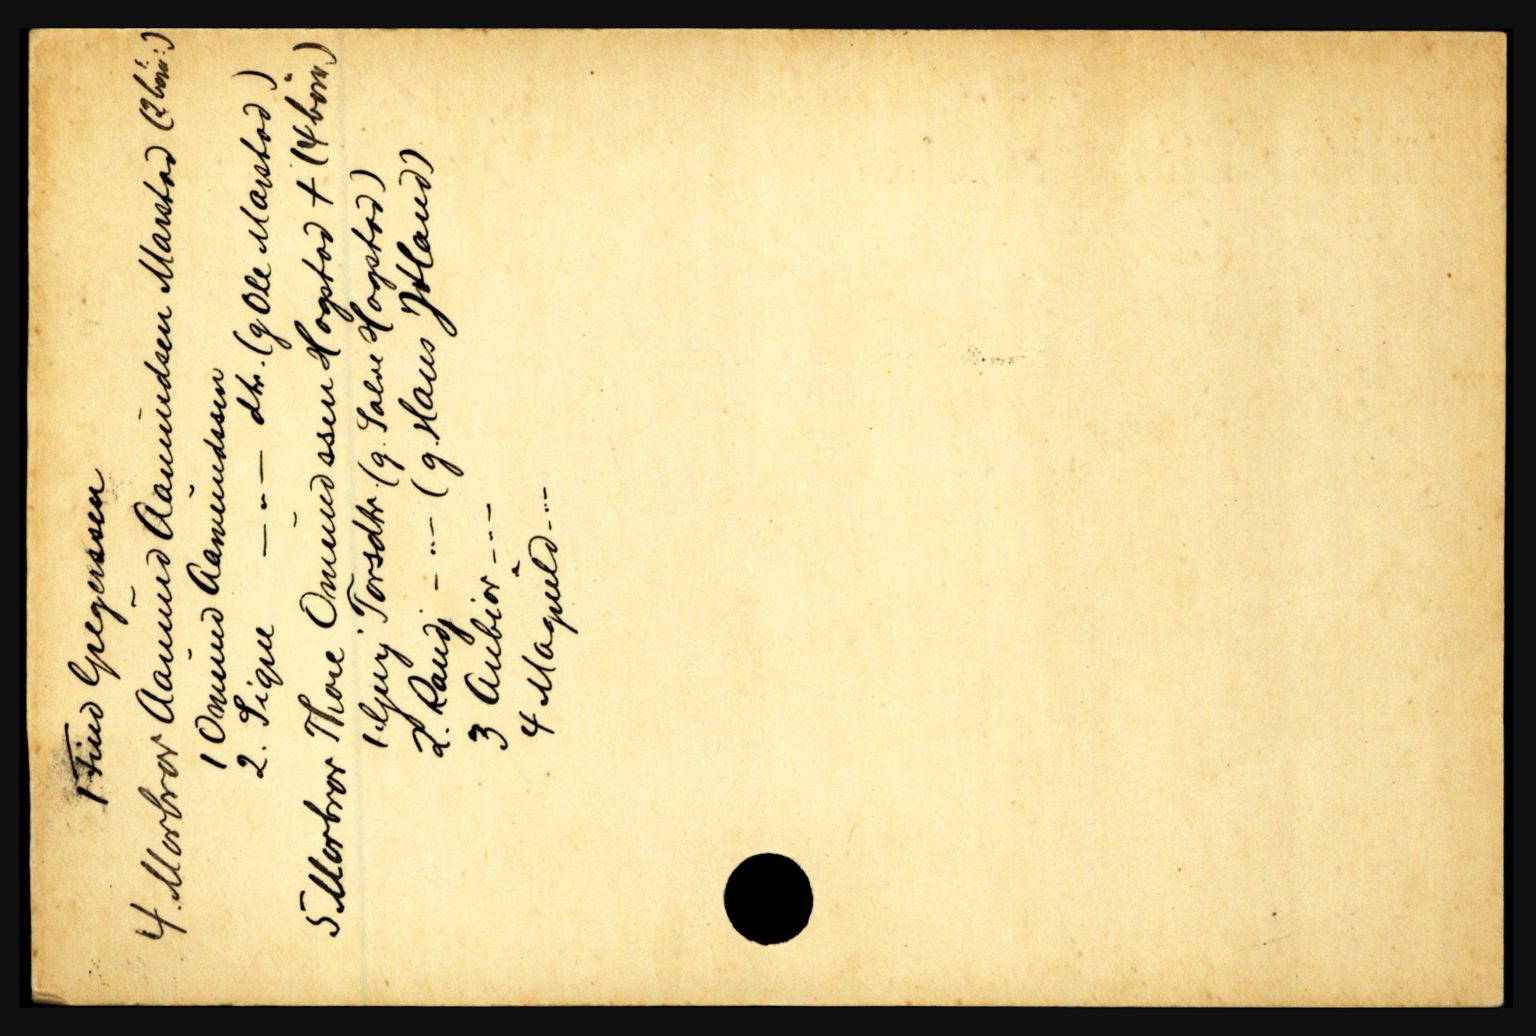 1 Find Gregerssen
4 Morbror Aamund Aamundsen Marstad (2 børn:)
1 Omund Aamundssen
2. Sigrie —"— dtr. (g Ole Marstad)
5 Morbror Thore Omundssen Hogstad † (4 børn)
1. Gury Torsdtr (g. Salve Hogstad)
2. Randj —"— (g. Hans Jotland)
3 Anbiør —"—
4 Magnild —"—